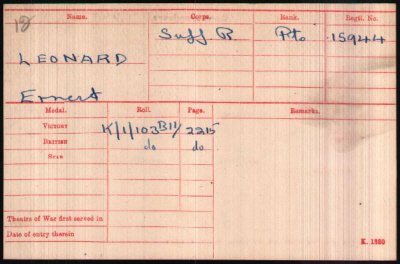 Name. Corps. Rank. Regtl. No.
12
Suff. R. Pte 15944
LEONARD
Ernest
Medal. Roll. Page. Remarks.
VICTORY K/1/103B11/ 2215
BRITISH do do
STAR
Theatre of War first served in
Date of entry therein
K. 1380